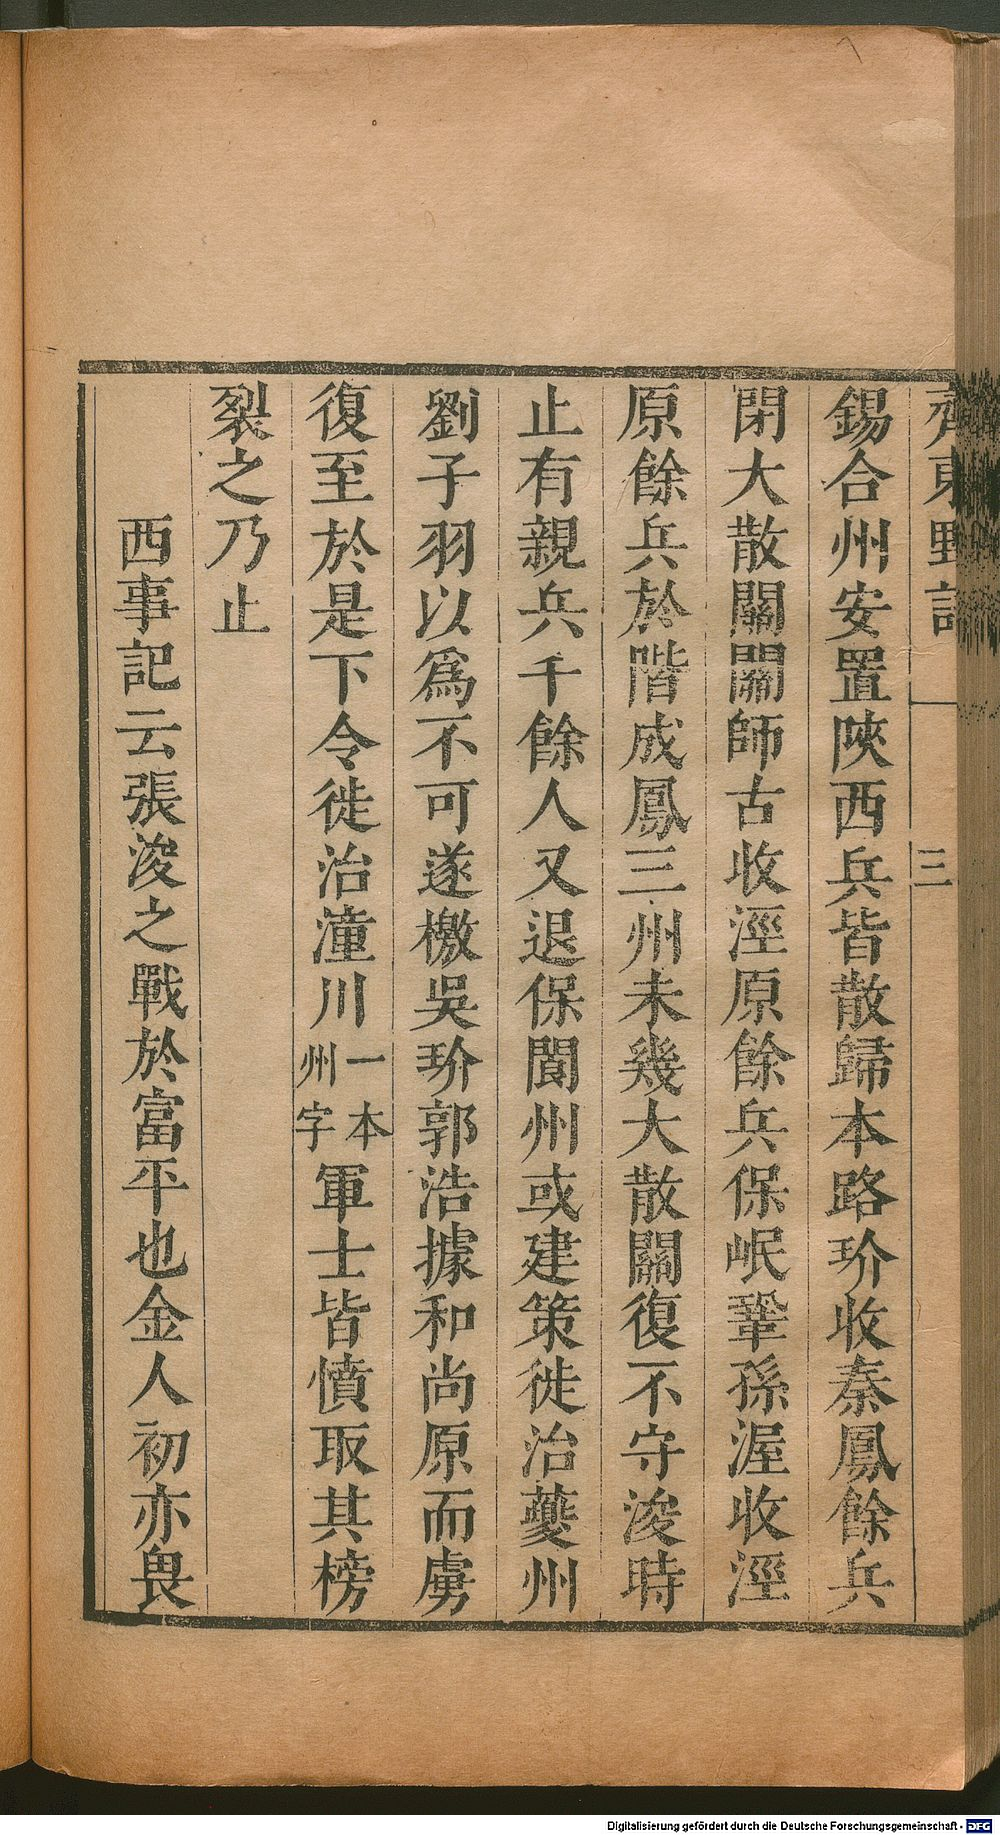 齊東野語
三
錫合州安置陝西兵皆散歸本路玠收秦鳳餘兵
閉大散關關師古收涇原餘兵保岷鞏孫渥收涇
原餘兵於階成鳳三州未幾大散關復不守浚時
止有親兵千餘人又退保閬州或建策徙治夔州
劉子羽以爲不可遂檄吳玠郭浩據和尚原而虜
復至於是下令徙治潼川一本州字軍士皆憤取其榜
裂之乃止
西事記云張浚之戰於富平也金人初亦畏
Digitalisierung gefördert durch die Deutsche Forschungsgemeinschaft - DFG